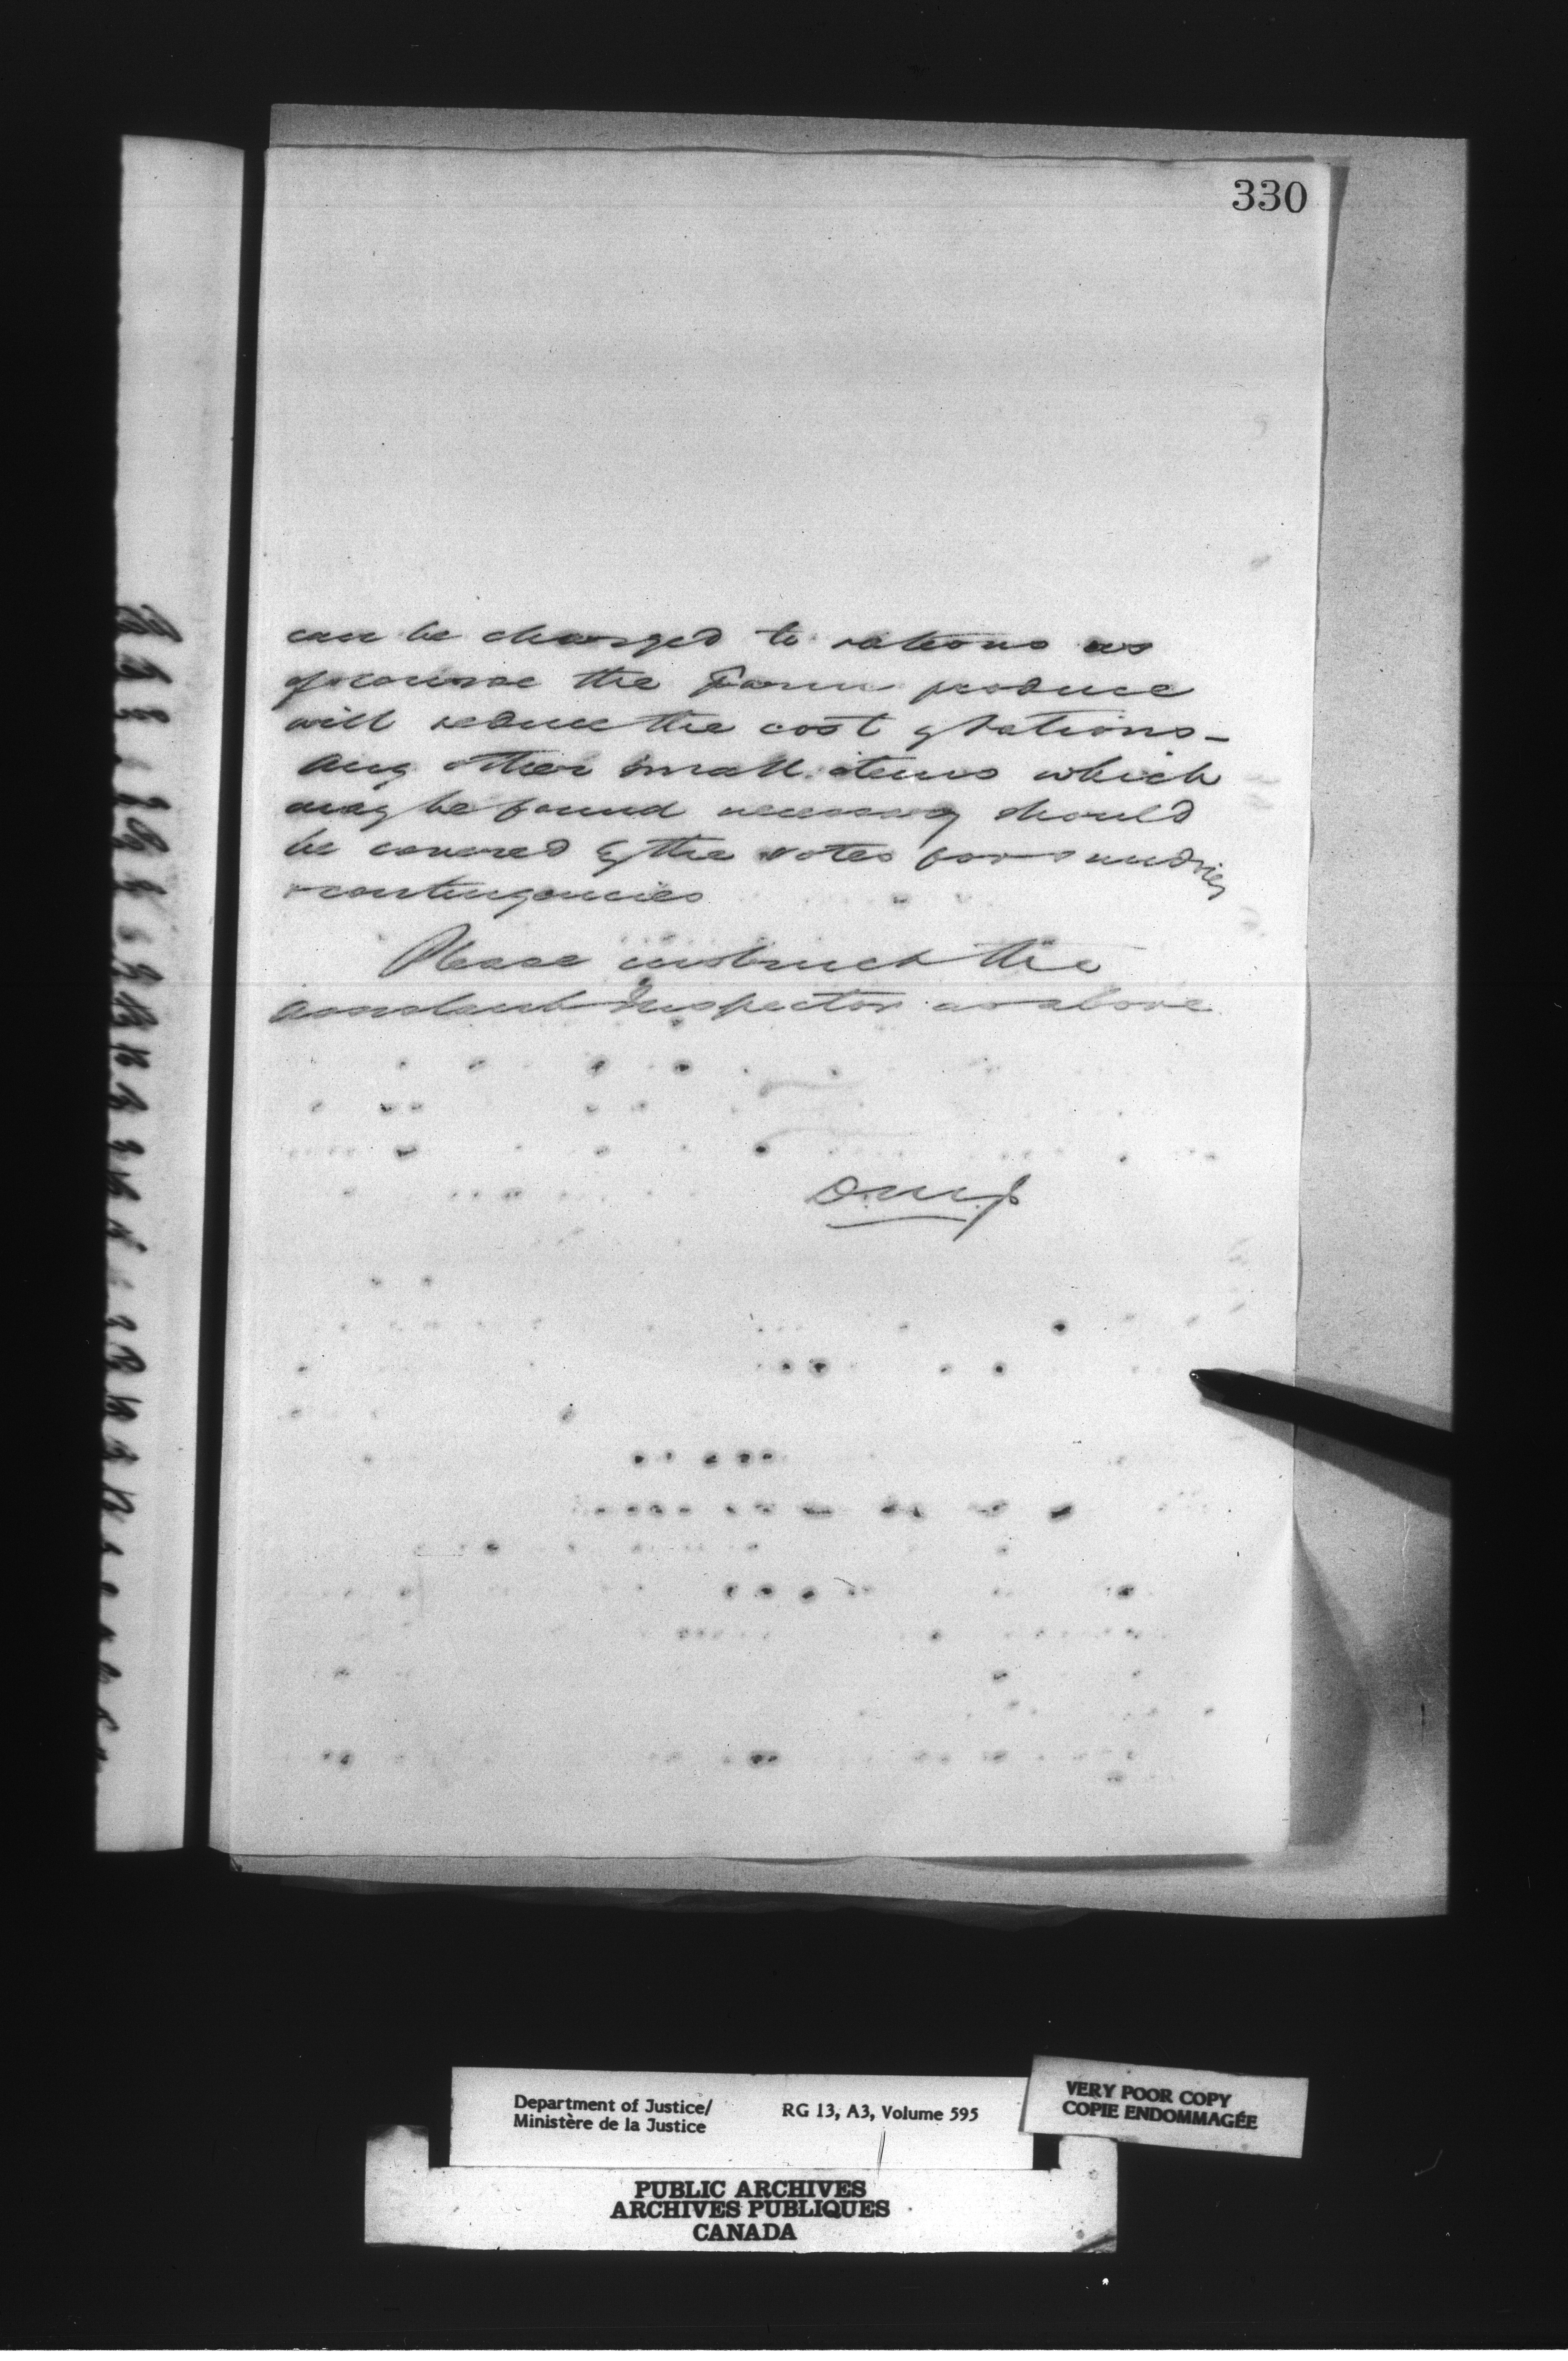 330
can be charged to rations as
of course the Farm produce
will reduce the cost of rations –
Any other small items which
may be found necessary should
be covered by the votes for sundries
& contingencies
Please instruct the
Assistant Inspector as above
D.M.J.
Department of Justice/
Ministère de la Justice
RG 13, A3, Volume 595
VERY POOR COPY
COPIE ENDOMMAGÉE
PUBLIC ARCHIVES
ARCHIVES PUBLIQUES
CANADA